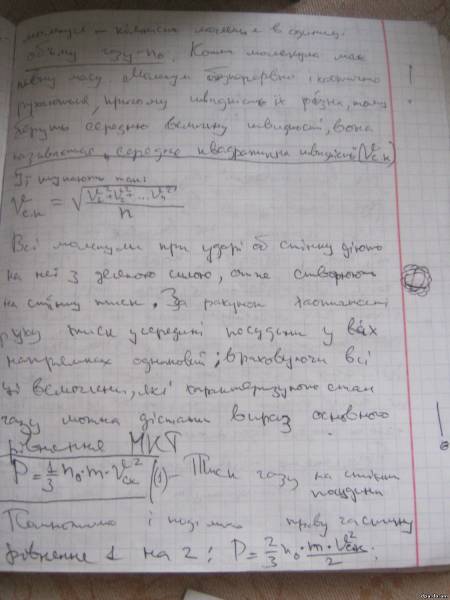 молекул – кількість молекул в одиниці
об'єму газу – n₀. Кожна молекула має
певну масу. Молекули безперервно і хаотично
рухаються, причому швидкість їх різна, тому
беруть середню величину швидкості, вона
називається середня квадратична швидкість (Vс.к)
Її шукають так:
Vс.к = √((V₁² + V₂² + ... Vₙ²)/n)
Всі молекули при ударі об стінку діють
на неї з деякою силою, отже створюють
на стінку тиск. За рахунок хаотичності
руху тиск усередині посудини у всіх
напрямках однаковий; враховуючи всі
ці величини, які характеризують стан
газу можна дістати вираз основного
рівнення МКТ
P = 1/3 n₀·m·Vск² (1) – Тиск газу на стінки
посудини
Помножимо і поділимо праву частину
рівнення 1 на 2: P = 2/3 n₀·(m·Vск²)/2;
dpa.da.am